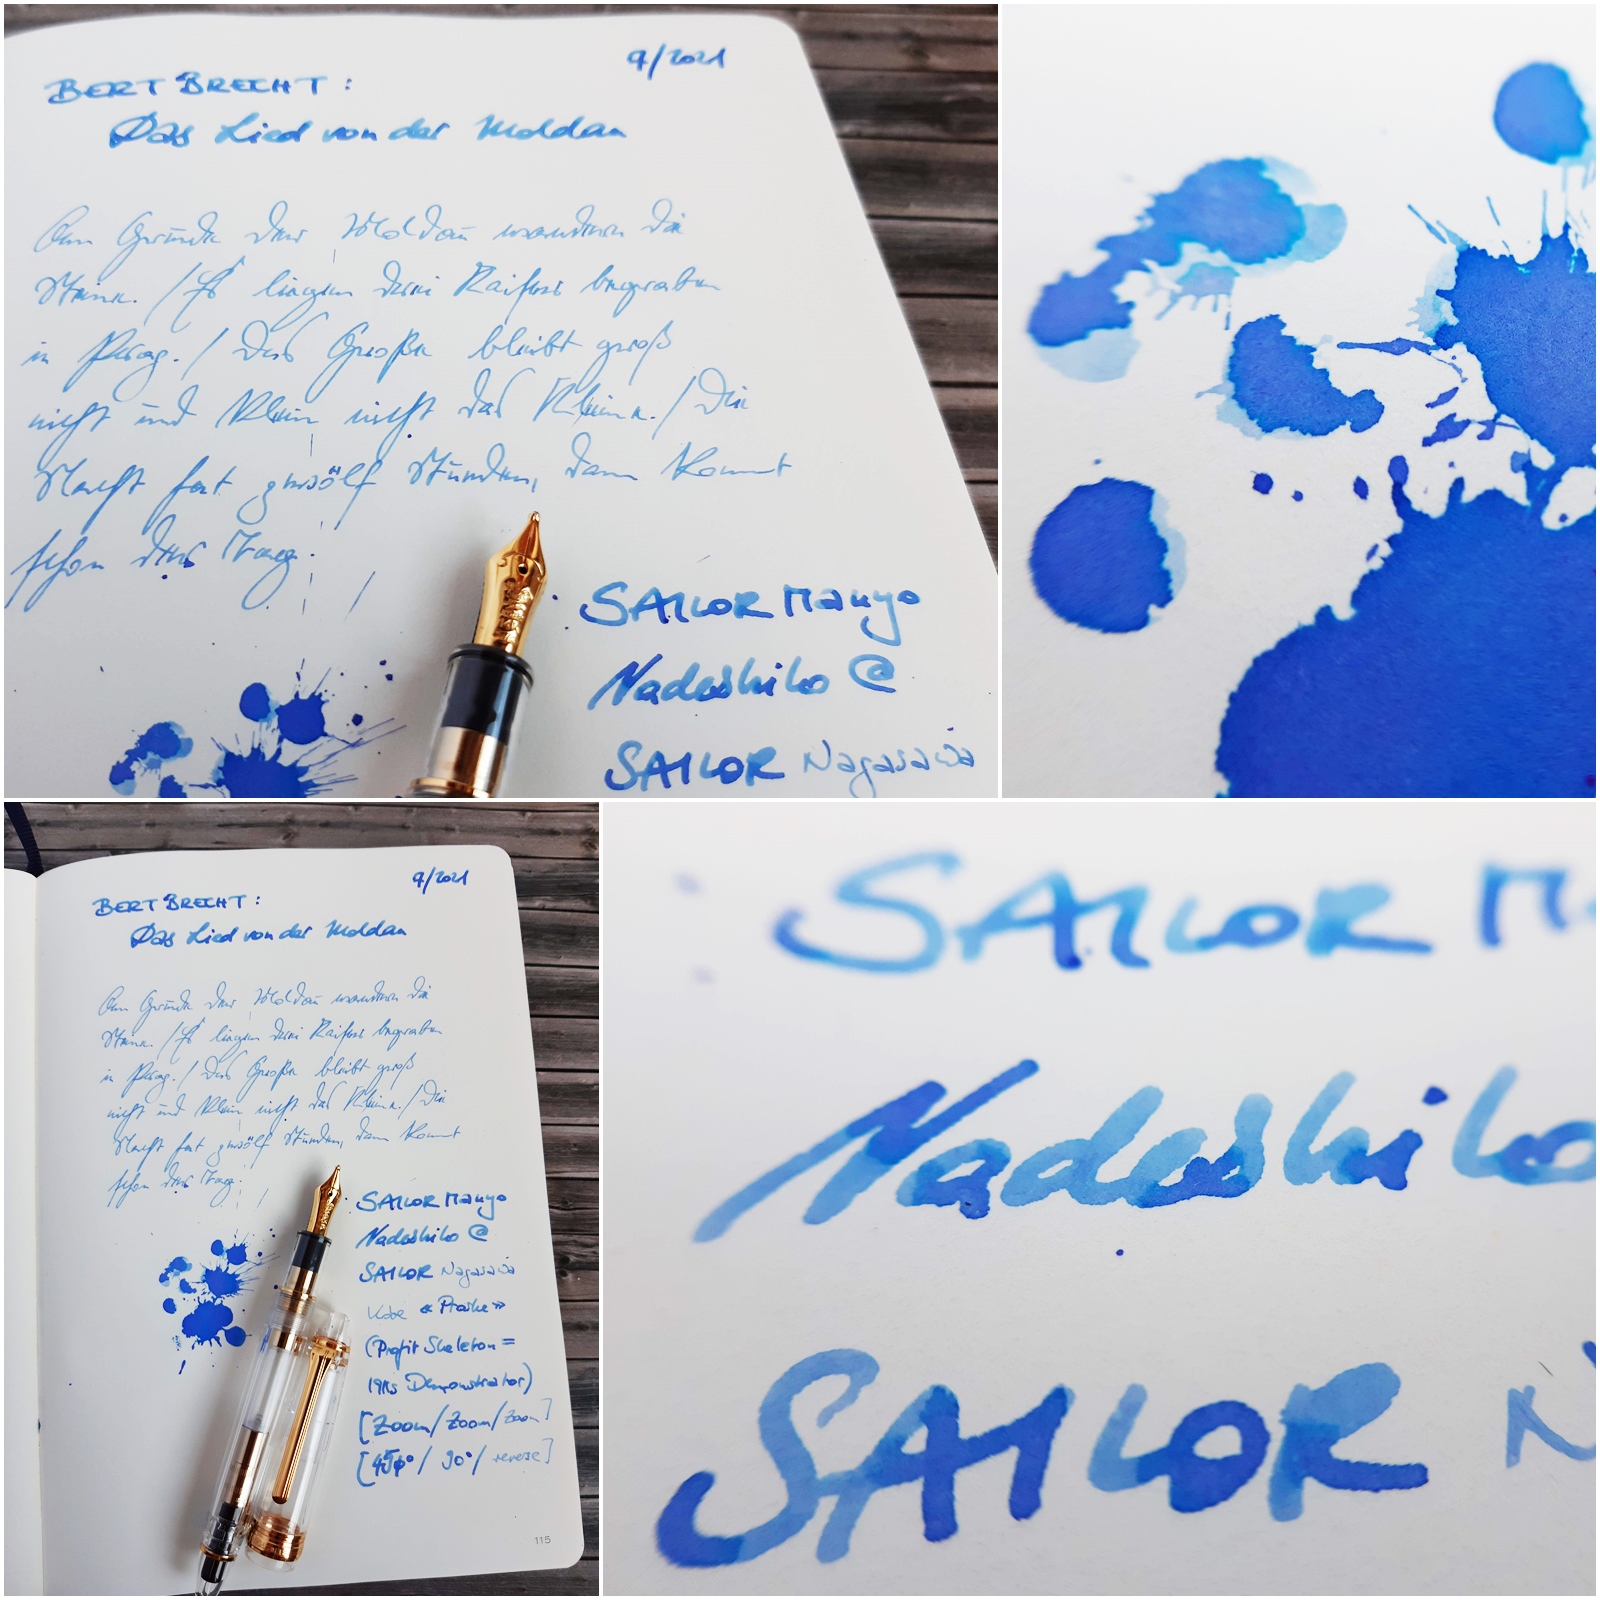 9/2021
BERT BRECHT:
Das Lied von der Moldau
Am Grunde der Moldau wandern die
Steine. / Es liegen drei Kaiser begraben
in Prag. / Das Große bleibt groß
nicht und klein nicht das Kleine. / Die
Nacht hat zwölf Stunden, dann kommt
schon der Tag.
SAILOR Manyo
Nadeshiko @
SAILOR Nagasawa
9/2021
BERT BRECHT:
Das Lied von der Moldau
Am Grunde der Moldau wandern die
Steine. / Es liegen drei Kaiser begraben
in Prag. / Das Große bleibt groß
nicht und klein nicht das Kleine. / Die
Nacht hat zwölf Stunden, dann kommt
schon der Tag.
SAILOR Manyo
Nadeshiko @
SAILOR Nagasawa
Kobe
(Profit Skeleton =
1911s Demonstrator)
[Zoom/Zoom/Zoom]
[45°/90°/reverse]
115
SAILOR Ma
Nadeshiko
SAILOR N